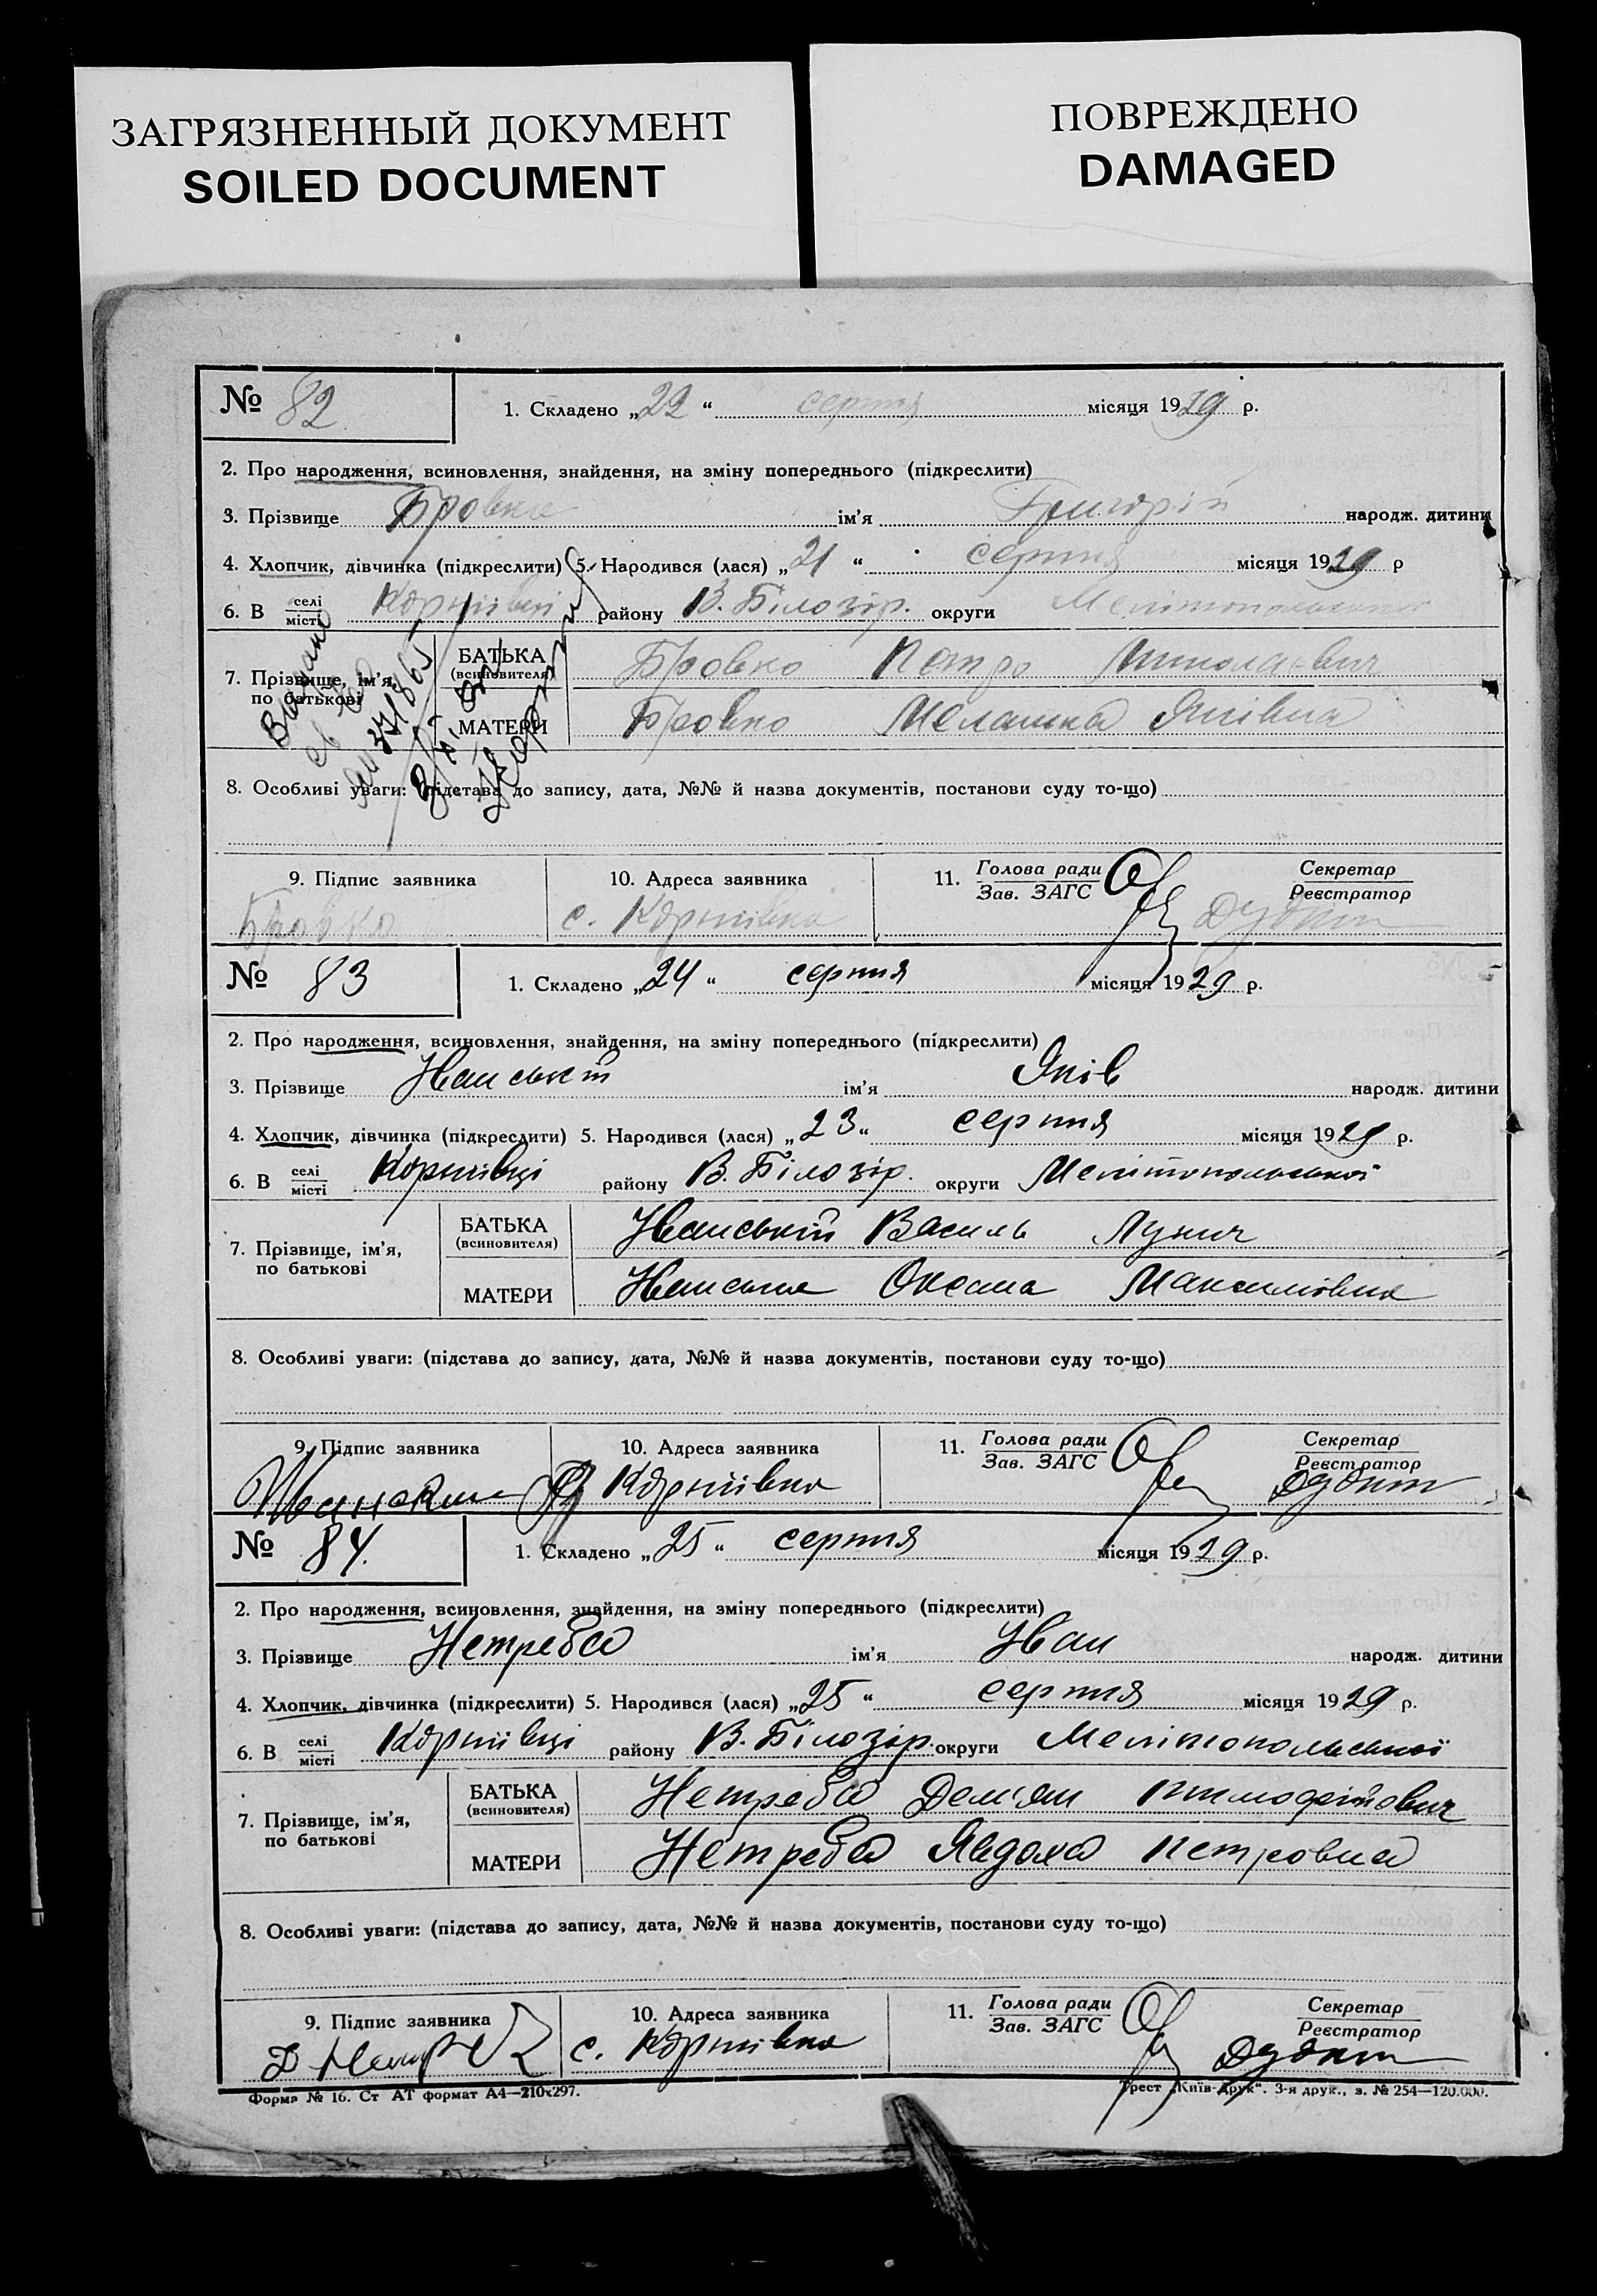 ЗАГРЯЗНЕННЫЙ ДОКУМЕНТ
SOILED DOCUMENT
ПОВРЕЖДЕНО
DAMAGED
№ 82 1. Складено „22“ серпня місяця 1929 р.
2. Про народження, всиновлення, знайдення, на зміну попереднього (підкреслити)
3. Прізвище Бровко ім'я Григорій народж. дитини
4. Хлопчик, дівчинка (підкреслити) 5. Народився (лася) „21“ серпня місяця 1929 р
6. В селі місті Корніївці району В. Білозір. округи Мелітопольської
7. Прізвище, ім'я, по батькові
БАТЬКА (всиновителя) Бровко Петро Миколаевич
МАТЕРИ Бровко Мелашка Яківна
8. Особливі уваги: (підстава до запису, дата, №№ й назва документів, постанови суду то-що)
9. Підпис заявника 10. Адреса заявника 11. Голова ради Зав. ЗАГС Секретар Реєстратор
Бровко с. Корніївка
№ 83 1. Складено „24“ серпня місяця 1929 р.
2. Про народження, всиновлення, знайдення, на зміну попереднього (підкреслити)
3. Прізвище Іванський ім'я Яків народж. дитини
4. Хлопчик, дівчинка (підкреслити) 5. Народився (лася) „23“ серпня місяця 1929 р.
6. В селі місті Корніївці району В. Білозір. округи Мелітопольської
7. Прізвище, ім'я, по батькові
БАТЬКА (всиновителя) Іванській Василь Лукич
МАТЕРИ Іванська Оксана Максимовна
8. Особливі уваги: (підстава до запису, дата, №№ й назва документів, постанови суду то-що)
9. Підпис заявника 10. Адреса заявника 11. Голова ради Зав. ЗАГС Секретар Реєстратор
Корніївка
№ 84. 1. Складено „25“ серпня місяця 1929 р.
2. Про народження, всиновлення, знайдення, на зміну попереднього (підкреслити)
3. Прізвище Нетреба ім'я Іван народж. дитини
4. Хлопчик, дівчинка (підкреслити) 5. Народився (лася) „25“ серпня місяця 1929 р.
6. В селі місті Корніївці району В. Білозір. округи Мелітопольської
7. Прізвище, ім'я, по батькові
БАТЬКА (всиновителя) Нетреба Дем'ян Тимофійович
МАТЕРИ Нетреба Явдоха Петровна
8. Особливі уваги: (підстава до запису, дата, №№ й назва документів, постанови суду то-що)
9. Підпис заявника 10. Адреса заявника 11. Голова ради Зав. ЗАГС Секретар Реєстратор
с. Корніївка
Форма № 16. Ст АТ формат А4—210х297. Трест „Київ-Друк“. 3-я друк., з. № 254—120.000.